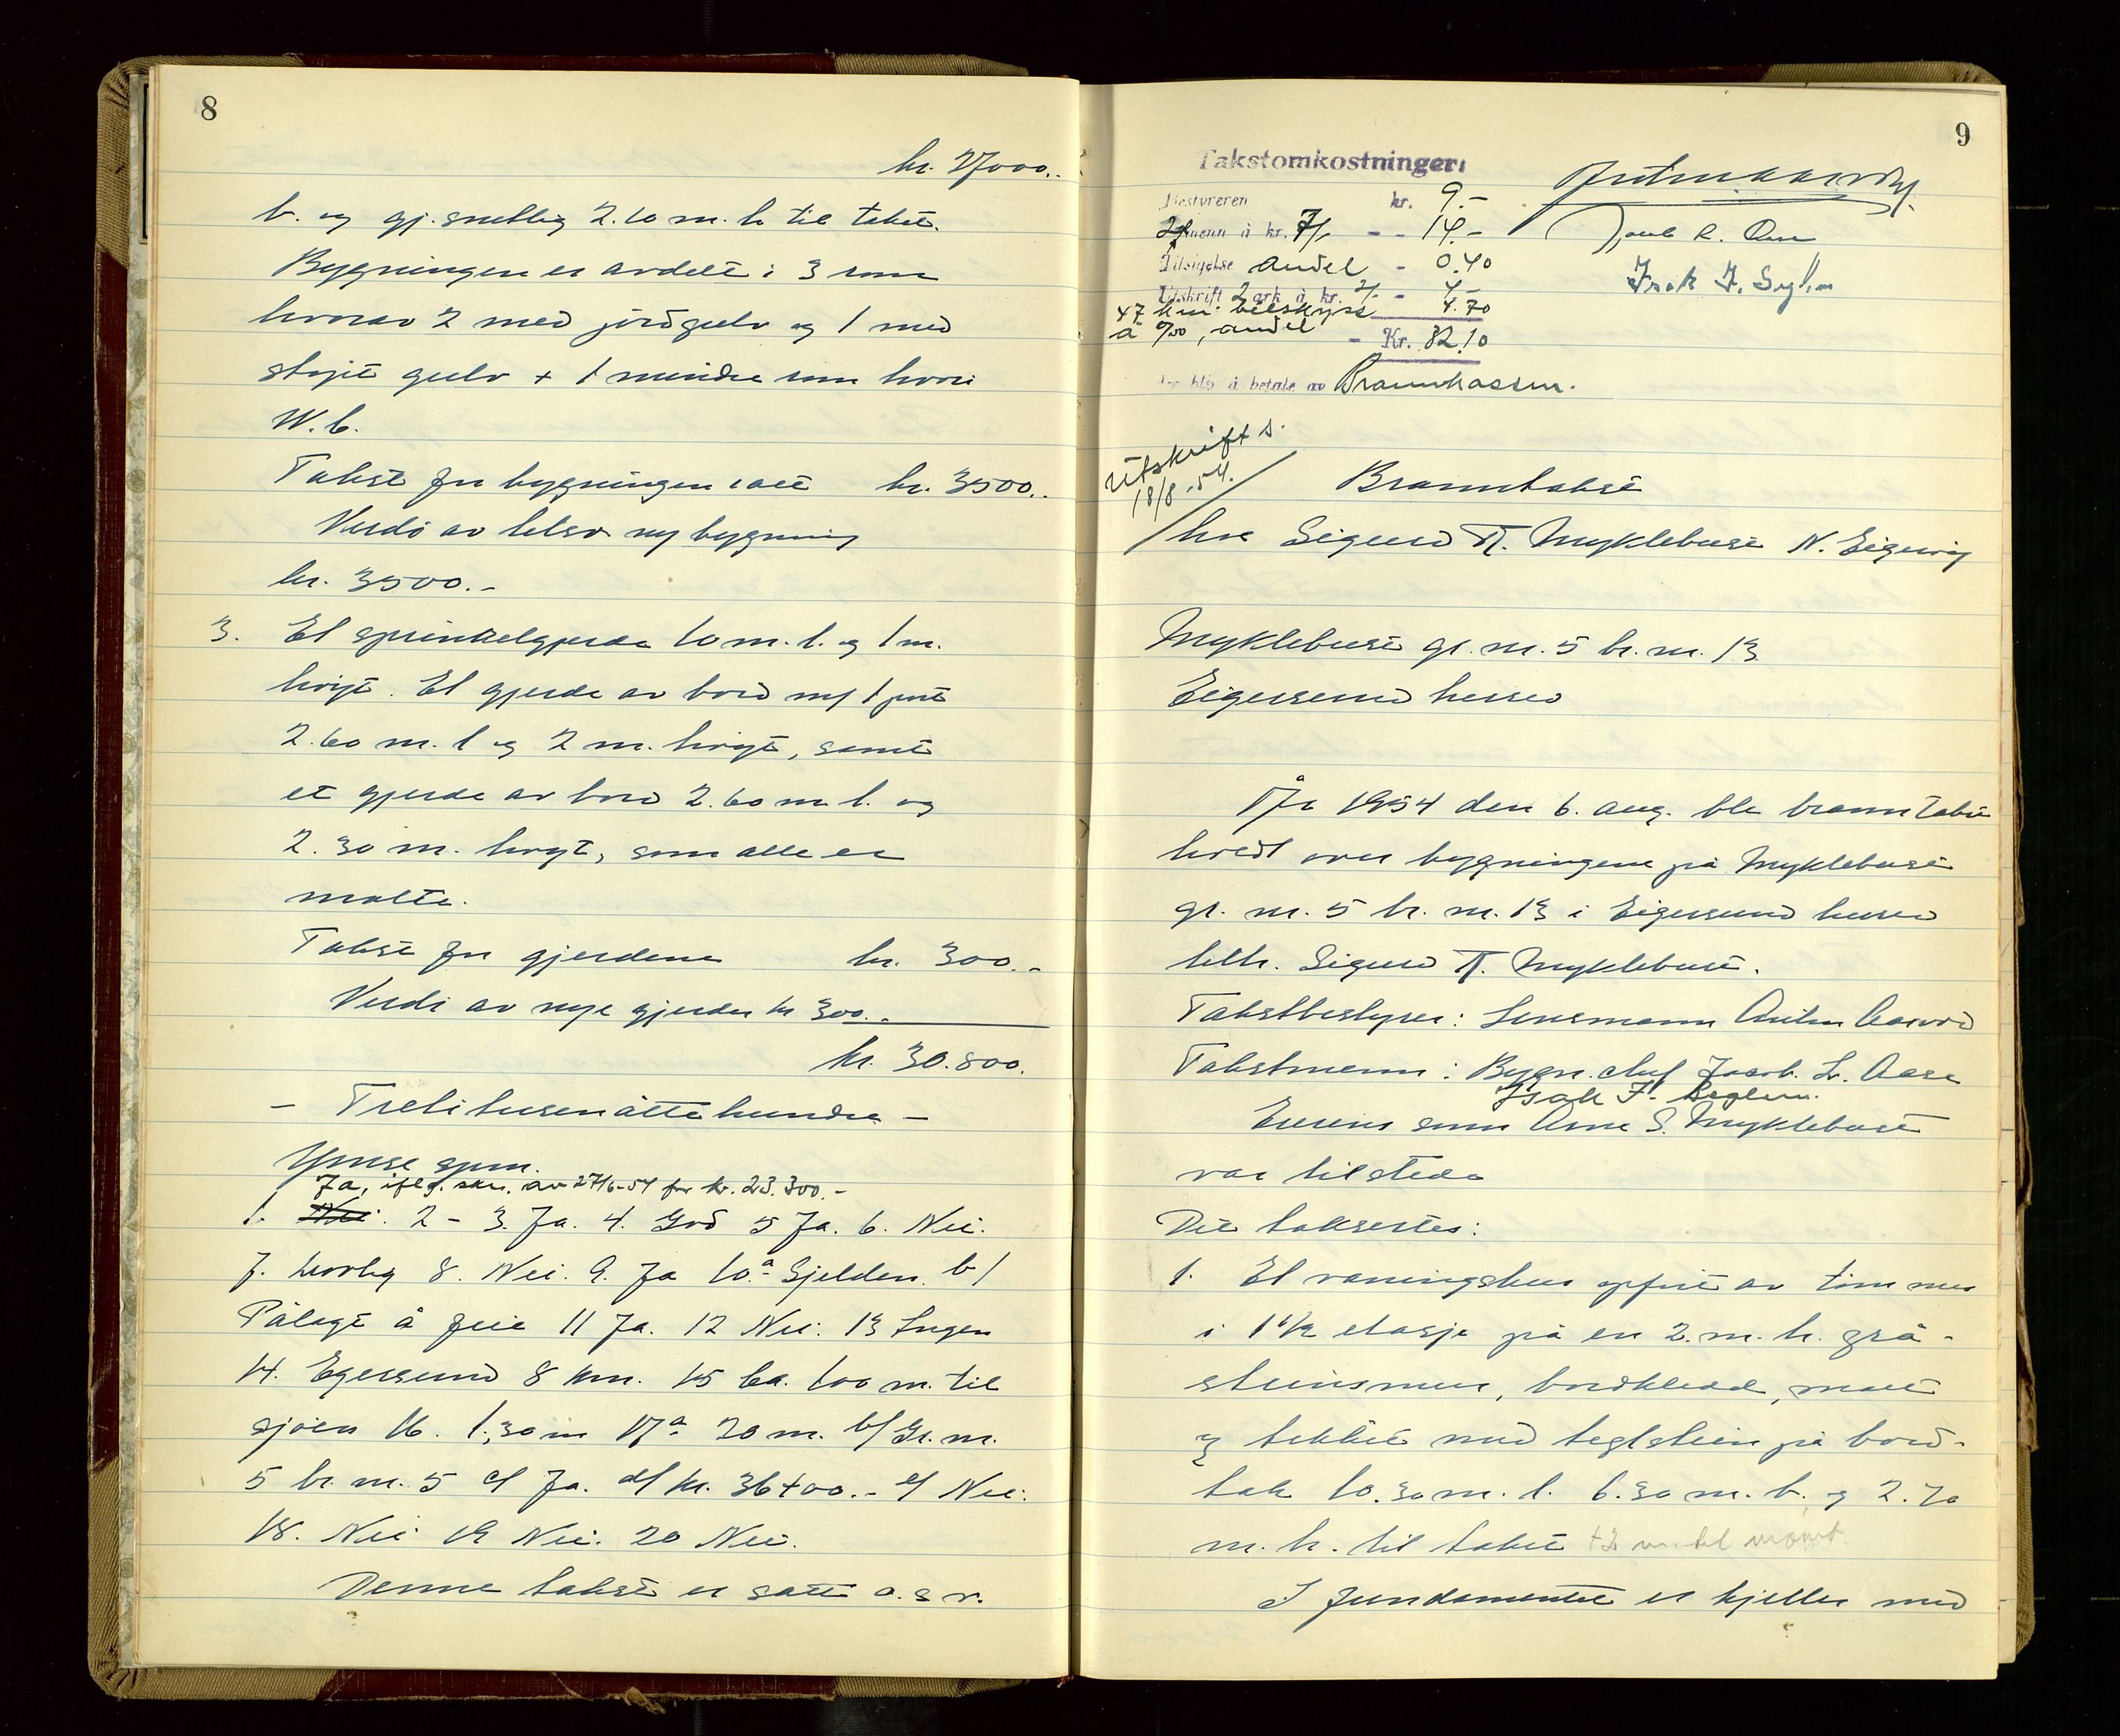 8
kr. 27000.-
b. og gj.snittlig 2.10 m. h. til taket.
Bygningen er avdelt i 3 rom
hvorav 2 med jordgulv og 1 med
støpt gulv + 1 mindre rom hvori
W.C.
Takst for bygningen satt kr. 3500.-
Verdi av tilsv. ny bygning
kr. 3500.-
3. Et sprinkelgjerde 10 m. l. og 1 m.
høyt. Et gjerde av bord m/ 1 port
2.60 m. l. og 2 m. høyt, samt
et gjerde av bord 2.60 m. l. og
2.30 m. høyt, som alle er
malte.
Takst for gjerdene kr. 300.-
Verdi av nye gjerder kr 300.-
kr. 30.800.
- Trettitusenåttehundre -
Ymse spm.
Ja, iflg. skr. av 27/6-54 for kr. 23.300.-
1. Nei. 2 - 3. Ja. 4. God 5 Ja. 6. Nei.
7. 8. Nei. 9. Ja 10.a Sjelden. b/
Pålagt å feie 11 Ja. 12 Nei. 13 Ingen
14. Egersund 8 km. 15 Ca. 100 m. til
sjøen 16. 1,30 m 17a 20 m. b/ Gr. nr.
5 br. nr. 5 c/ Ja. d/ kr. 36400.- e/ Nei.
18. Nei 19 Nei. 20 Nei.
Denne takst er satt o.s.v.
9
Takstomkostninger:
Bestyreren kr. 9.-
2 menn à kr. 7/- - - 14.-
Tilsigelse andel - 0.40
Utskrift 2 ark à kr. 2/- - 4.-
47 km bilskyss 4.70
à 0/50, andel - Kr. 32.10
som blir å betale av Brannkassen.
Jacob L. Aase
Isak F. Seglem
Utskrift s.
18/8-54.
Branntakst
hos Sigurd T. Myklebust N. Eigerøy
Myklebust gr. nr. 5 br. nr. 13
Eigersund herred
År 1954 den 6. aug. ble branntakst
holdt over bygningene på Myklebust
gr. nr. 5 br. nr. 13 i Eigersund herred
tilh. Sigurd T. Myklebust.
Takstbestyrer: Lensmann Anton Aarvold
Takstmenn: Bygn.chef Jacob. L. Aase
Isak F. Seglem.
Eierens sønn Arne S. Myklebust
var tilstede
Det takseres:
1. Et våningshus oppført av tømmer
i 1 1/2 etasje på en 2. m. h. grå-
steinsmur, bordkledd, malt
og tekket med teglstein på bord-
tak 10.30 m. l. 6.30 m. b. og 2.70
m. h. til taket
I fundamentet er kjeller med